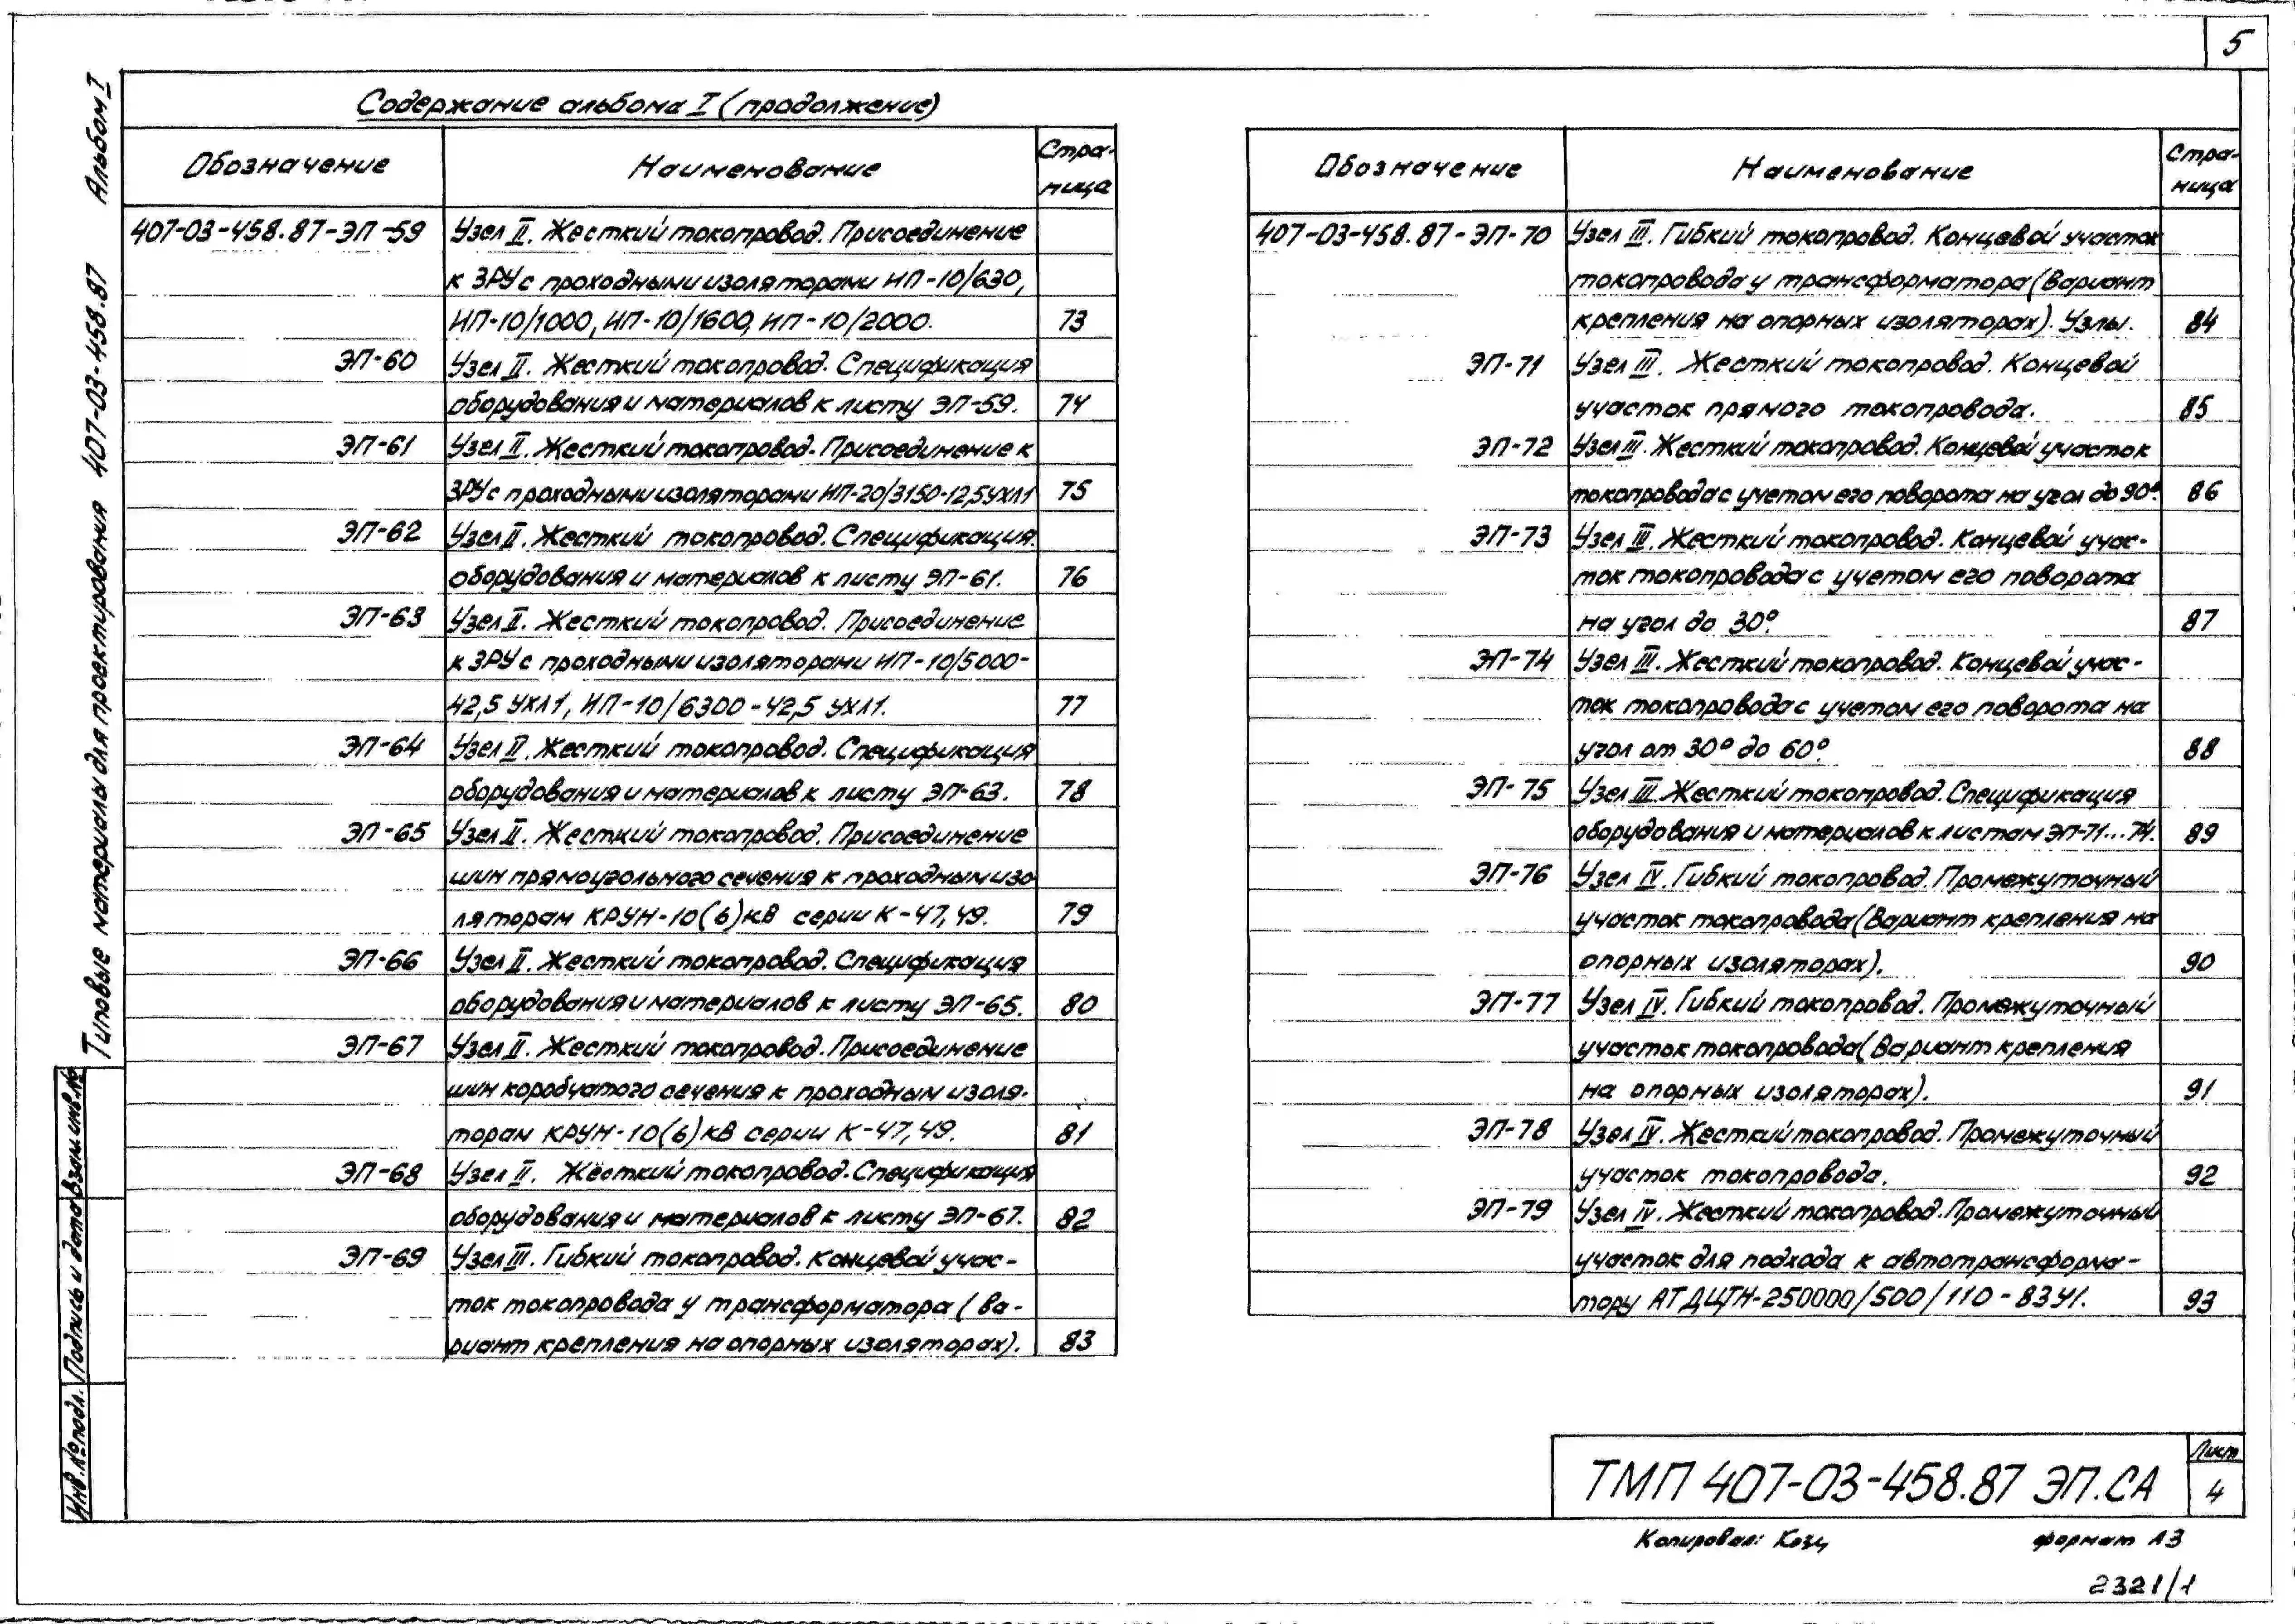 5
Содержание альбома I (продолжение)
Обозначение Наименование Стра-
ница
407-03-458.87-ЭП-59 Узел II. Жесткий токопровод. Присоединение
к ЗРУ с проходными изоляторами ИП-10/630,
ИП-10/1000, ИП-10/1600, ИП-10/2000. 73
ЭП-60 Узел II. Жесткий токопровод. Спецификация
оборудования и материалов к листу ЭП-59. 74
ЭП-61 Узел II. Жесткий токопровод. Присоединение к
ЗРУ с проходными изоляторами ИП-20/3150-12,5УХЛ1 75
ЭП-62 Узел II. Жесткий токопровод. Спецификация
оборудования и материалов к листу ЭП-61. 76
ЭП-63 Узел II. Жесткий токопровод. Присоединение
к ЗРУ с проходными изоляторами ИП-10/5000-
42,5 УХЛ1, ИП-10/6300-42,5 УХЛ1. 77
ЭП-64 Узел II. Жесткий токопровод. Спецификация
оборудования и материалов к листу ЭП-63. 78
ЭП-65 Узел II. Жесткий токопровод. Присоединение
шин прямоугольного сечения к проходным изо
ляторам КРУН-10(6)кВ серии К-47,49. 79
ЭП-66 Узел II. Жесткий токопровод. Спецификация
оборудования и материалов к листу ЭП-65. 80
ЭП-67 Узел II. Жесткий токопровод. Присоединение
шин коробчатого сечения к проходным изоля-
торам КРУН-10(6)кВ серии К-47,49. 81
ЭП-68 Узел II. Жёсткий токопровод. Спецификация
оборудования и материалов к листу ЭП-67. 82
ЭП-69 Узел III. Гибкий токопровод. Концевой учас-
ток токопровода у трансформатора (ва-
риант крепления на опорных изоляторах). 83
Обозначение Наименование Стра-
ница
407-03-458.87-ЭП-70 Узел III. Гибкий токопровод. Концевой участок
токопровода у трансформатора (вариант
крепления на опорных изоляторах). Узлы. 84
ЭП-71 Узел III. Жесткий токопровод. Концевой
участок прямого токопровода. 85
ЭП-72 Узел III. Жесткий токопровод. Концевой участок
токопровода с учетом его поворота на угол до 90°. 86
ЭП-73 Узел III. Жесткий токопровод. Концевой учас-
ток токопровода с учетом его поворота
на угол до 30°. 87
ЭП-74 Узел III. Жесткий токопровод. Концевой учас-
ток токопровода с учетом его поворота на
угол от 30° до 60°. 88
ЭП-75 Узел III. Жесткий токопровод. Спецификация
оборудования и материалов к листам ЭП-71...74. 89
ЭП-76 Узел IV. Гибкий токопровод. Промежуточный
участок токопровода (Вариант крепления на
опорных изоляторах). 90
ЭП-77 Узел IV. Гибкий токопровод. Промежуточный
участок токопровода (Вариант крепления
на опорных изоляторах). 91
ЭП-78 Узел IV. Жесткий токопровод. Промежуточный
участок токопровода. 92
ЭП-79 Узел IV. Жесткий токопровод. Промежуточный
участок для подхода к автотрансформа-
тору АТДЦТН-250000/500/110-83У1. 93
Типовые материалы для проектирования 407-03-458.87 Альбом I
Инв.№подл. Подпись и дата Взам.инв.№
ТМП 407-03-458.87 ЭП.СА
Лист
4
Копировал: Козц формат А3
2321/1